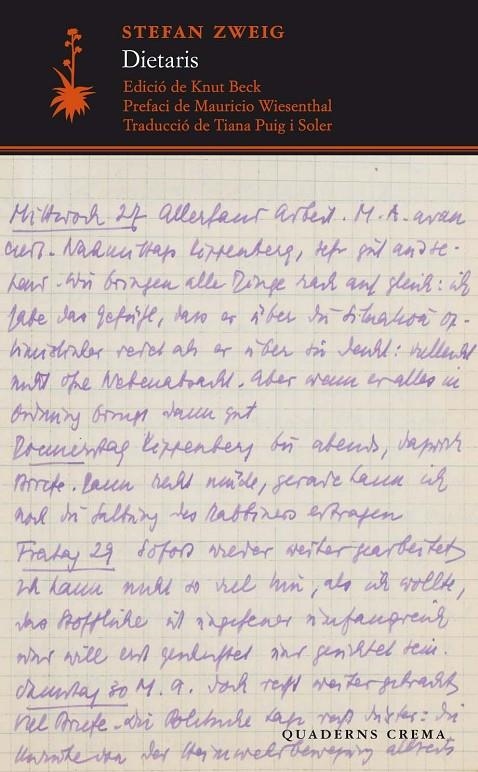 STEFAN ZWEIG
Dietaris
Edició de Knut Beck
Prefaci de Mauricio Wiesenthal
Traducció de Tiana Puig i Soler
Mittwoch 27 Allerhand Arbeit. M. A.
Nachmittags Kippenberg, sehr gut
Wir bringen alle Dinge rasch auf gleich: ich
habe das Gefühl, dass er über die Situation op-
timistischer redet als er über sie denkt: vielleicht
nicht ohne Nebenabsicht. Aber wenn er alles in
Ordnung bringt dann gut
Donnerstag Kippenberg bis abends, dazwisch
Briefe. Dann recht müde, gerade kann ich
noch die des Rabbiners ertragen
Freitag 29 Sofort wieder weiter gearbeitet
Ich kann nicht so viel hin, als ich wollte,
das Stoffliche ist ungeheuer umfangreich
und will erst gesichtet sein.
Samstag 30 M. A. doch weiter gebracht
Viel Briefe. Die Politische Lage düster: die
von der Heimwehrbewegung
QUADERNS CREMA